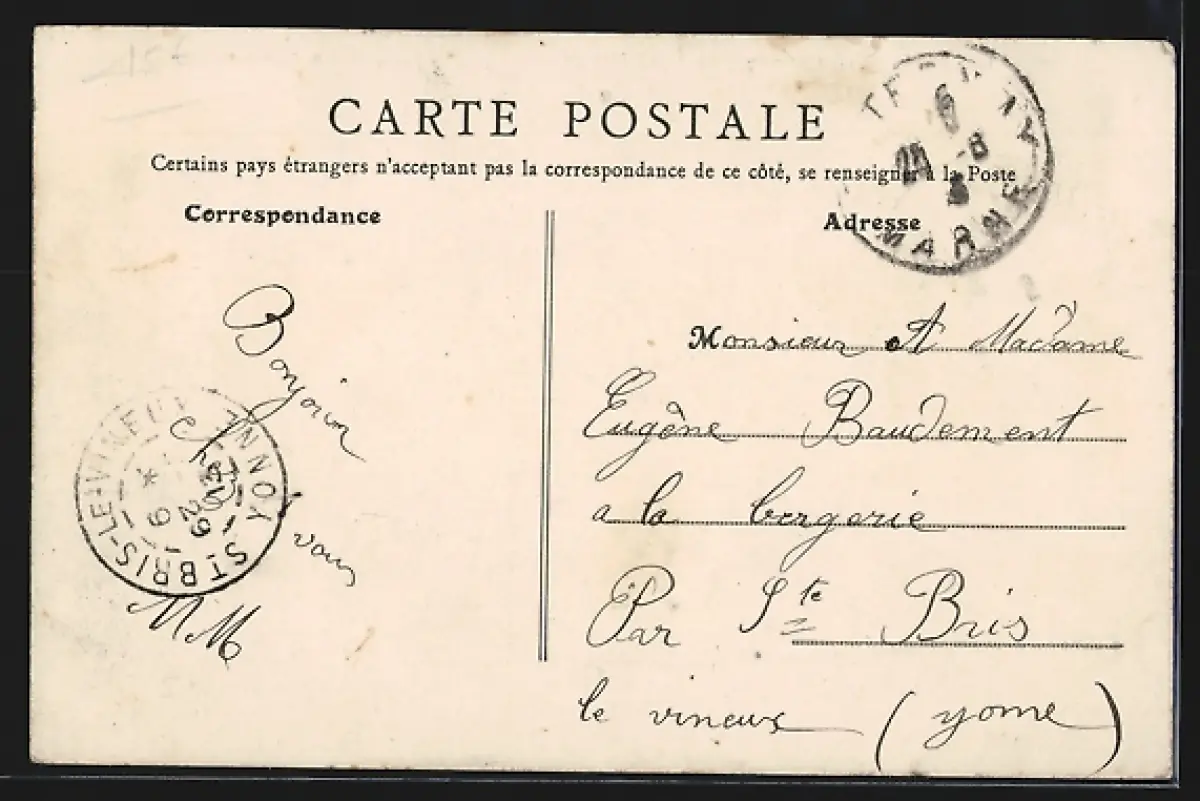 CARTE POSTALE
Certains pays étrangers n'acceptant pas la correspondance de ce côté, se renseigner à la Poste
Correspondance
Adresse
MARNE
Bonjour
chez
vous
MM
ST BRIS-LE-VINEUX YONNE
Monsieur et Madame
Eugène Baudement
a la bergerie
Par Ste Bris
le vineux (yonne)